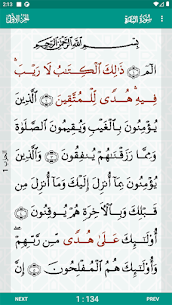 2:13
سُورَةُ البَقَرَةِ
الجزء الأول
بِسْمِ ٱللَّهِ ٱلرَّحْمَٰنِ ٱلرَّحِيمِ
الٓمٓ ۝١ ذَٰلِكَ ٱلْكِتَٰبُ لَا رَيْبَ ۛ
فِيهِ ۛ هُدًى لِّلْمُتَّقِينَ ۝٢ ٱلَّذِينَ
يُؤْمِنُونَ بِٱلْغَيْبِ وَيُقِيمُونَ ٱلصَّلَوٰةَ
وَمِمَّا رَزَقْنَٰهُمْ يُنفِقُونَ ۝٣ وَٱلَّذِينَ
يُؤْمِنُونَ بِمَآ أُنزِلَ إِلَيْكَ وَمَآ أُنزِلَ مِن
قَبْلِكَ وَبِٱلْءَاخِرَةِ هُمْ يُوقِنُونَ ۝٤
أُو۟لَٰٓئِكَ عَلَىٰ هُدًى مِّن رَّبِّهِمْ ۖ
وَأُو۟لَٰٓئِكَ هُمُ ٱلْمُفْلِحُونَ ۝٥
الحزب ١
NEXT 1 : 134 PREV